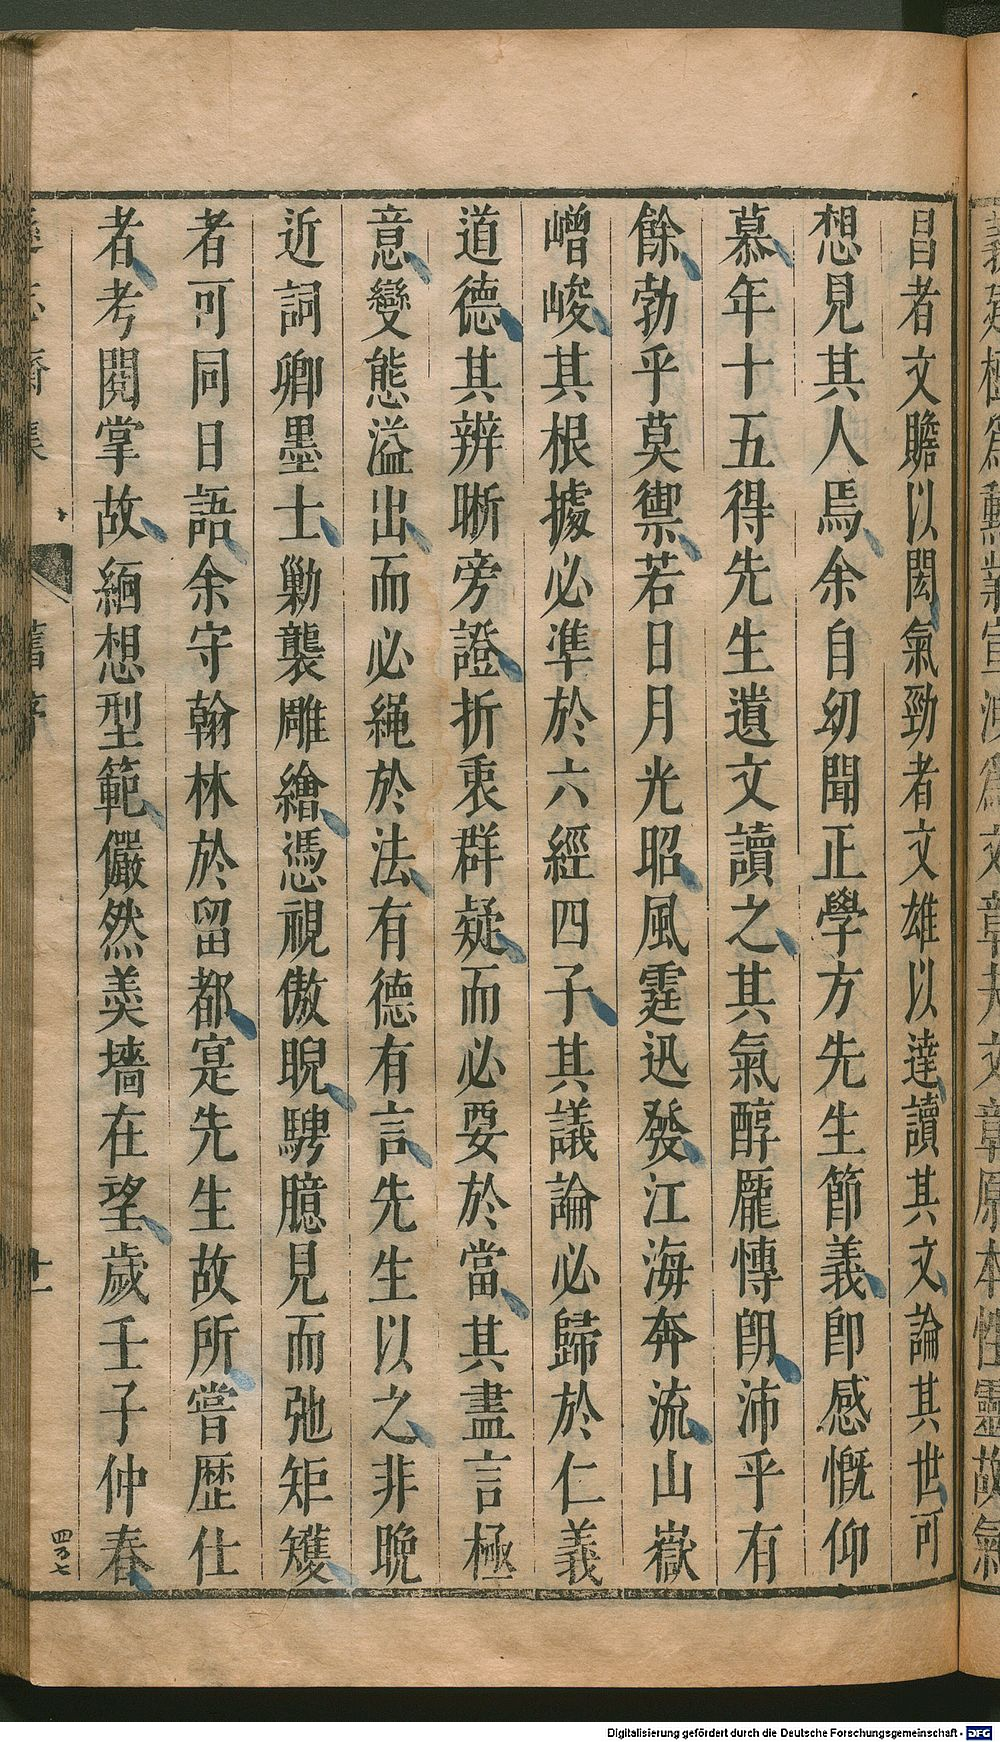 昌者文贍以閎氣勁者文雄以達讀其文論其世可
想見其人焉余自幼聞正學方先生節義即感慨仰
慕年十五得先生遺文讀之其氣醇龐慱朗沛乎有
餘勃乎莫禦若日月光昭風霆迅發江海奔流山嶽
嶒峻其根據必準於六經四子其議論必歸於仁義
道德其辨晰旁證折衷群疑而必要於當其盡言極
意變態溢出而必繩於法有德有言先生以之非晩
近詞卿墨士勦襲雕繪憑視傲睨騁臆見而弛矩矱
者可同日語余守翰林於留都寔先生故所嘗歴仕
者考閱掌故緬想型範儼然羹墻在望歲壬子仲春
舊序
廿一
四百七
Digitalisierung gefördert durch die Deutsche Forschungsgemeinschaft - DFG